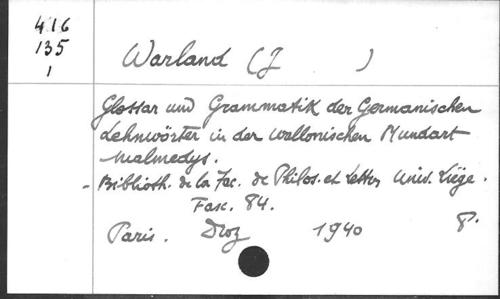 416
135
1
Warland (J )
Glossar und Grammatik der Germanischen
Lehnwörter in der wallonischen Mundart
Malmedys.
- Biblioth. de la Fac. de Philos. et Lettres Univ. Liège.
Fasc. 84.
Paris. Droz 1940 8º.